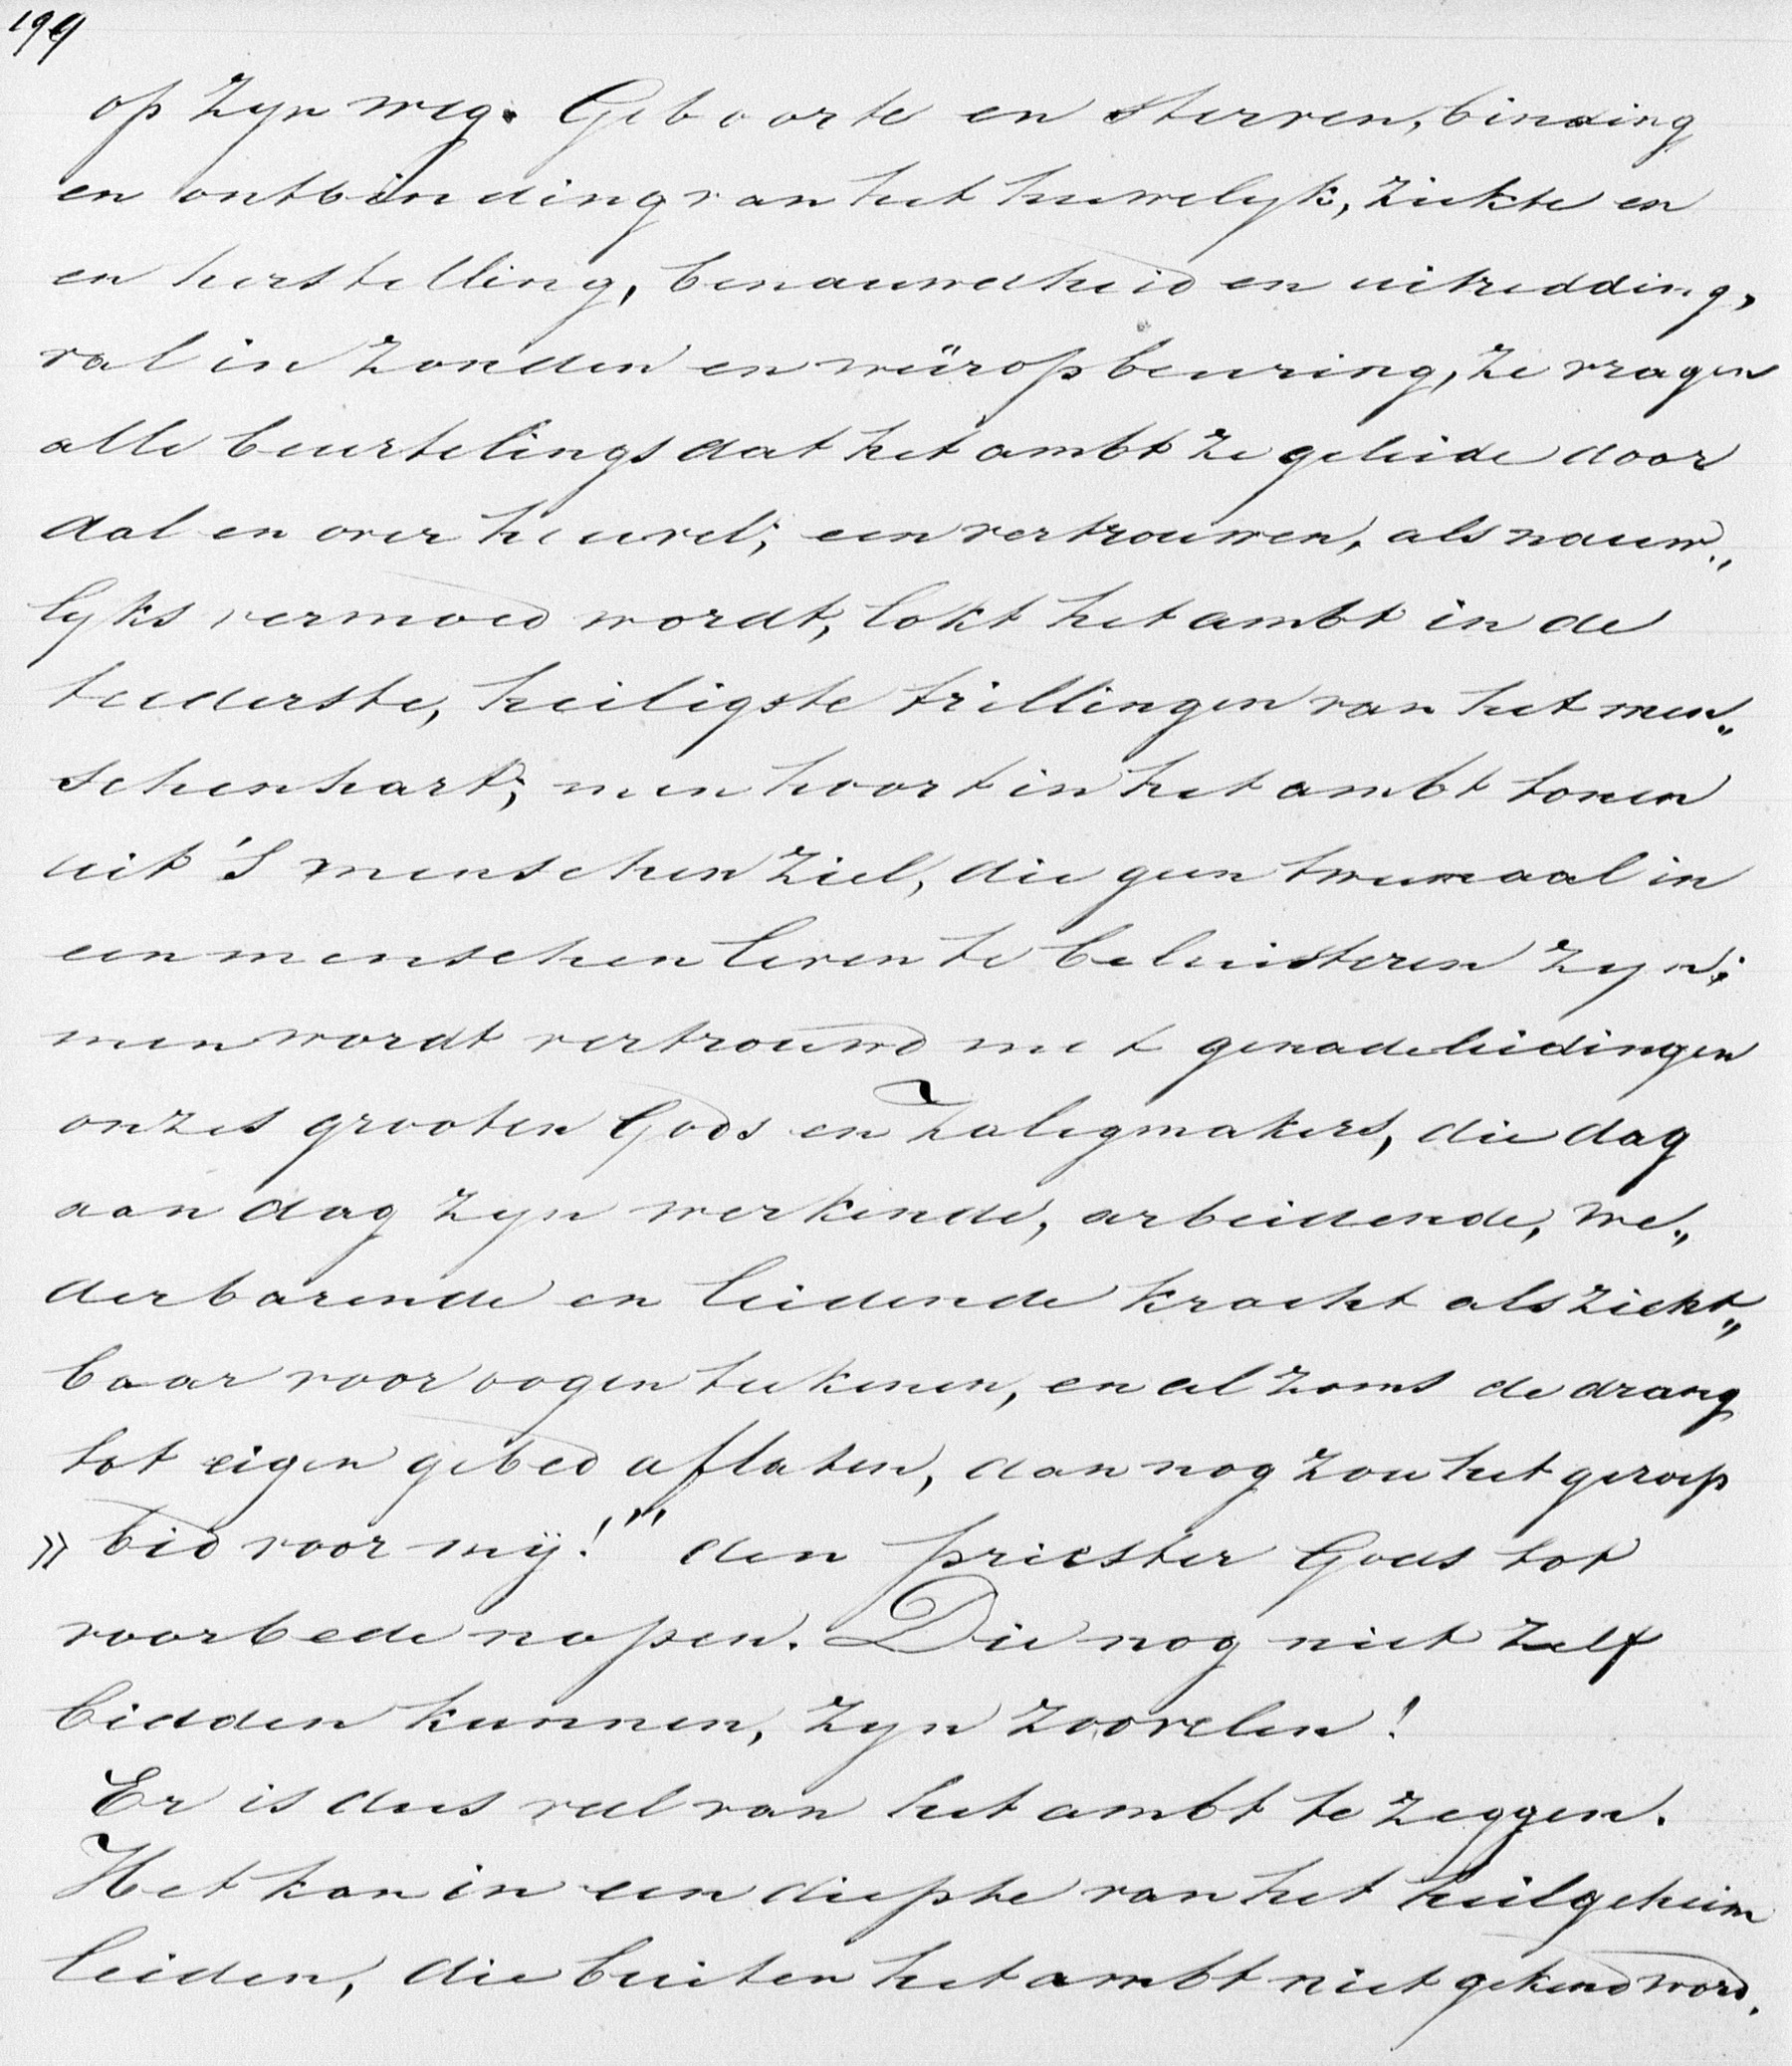 199
op zyn weg. Geboorte en sterven, binding
en ontbinding van het huwelyk, ziekte en
en herstelling, benauwdheid en uitredding,
val in zonden en wëropbeuring, ze vragen
alle beurtelings dat het ambt ze geleide door
dal en over heuvel; een vertrouwen, als nauw„
lyks vermoed wordt, lokt het ambt in de
teederste, heiligste trillingen van het men„
schenhart; men hoort in het ambt tonen
uit 's menschen ziel, die geen tweemaal in
een menschen leven te beluisteren zyn;
men wordt vertrouwd met genadeleidingen
onzes grooten Gods en Zaligmakers, die dag
aan dag zyn werkende, arbeidende, we„
derbarende en leidende kracht als zicht„
baar voor oogen teekenen, en al zoms de drang
tot eigen gebed aflaten, dan nog zou het geroep
» bid voor mij!" den priester Gods tot
voorbede nopen. Die nog niet zelf
bidden kunnen, zyn zoovelen!
Er is dus veel van het ambt te zeggen.
Het kan in een diepte van het heilgeheim
leiden, die buiten het ambt niet gekend word.